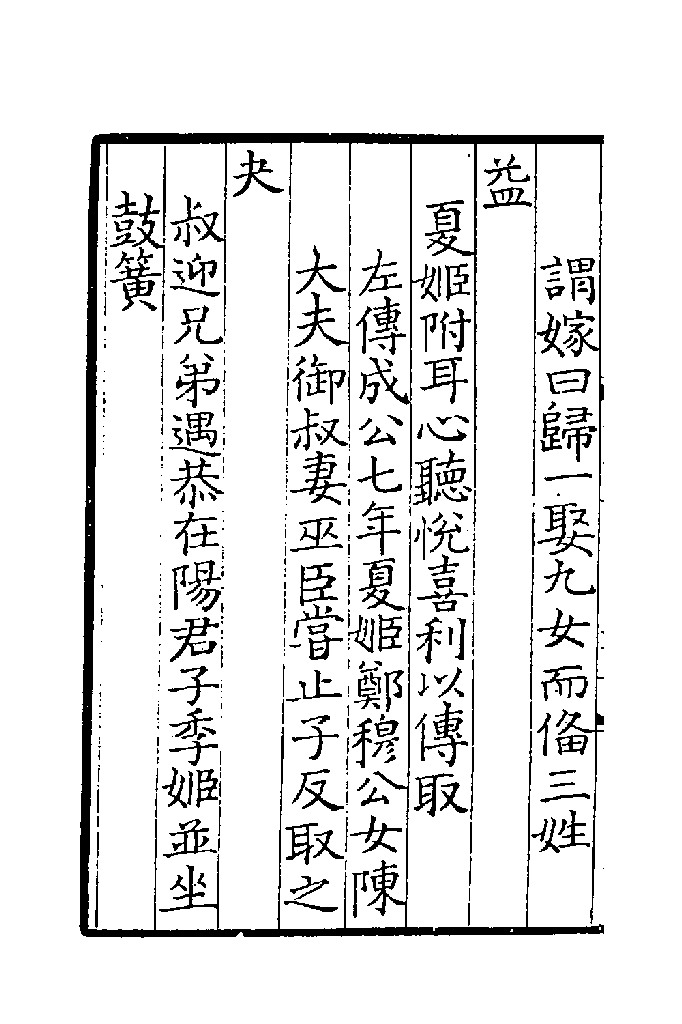 謂嫁曰歸一娶九女而偹三姓
益
夏姬附耳心聽悅喜利以傳取
左傳成公七年夏姬鄭穆公女陳
大夫御叔妻巫臣嘗止子反取之
夬
叔迎兄弟遇恭在陽君子季姬並坐
鼓簧